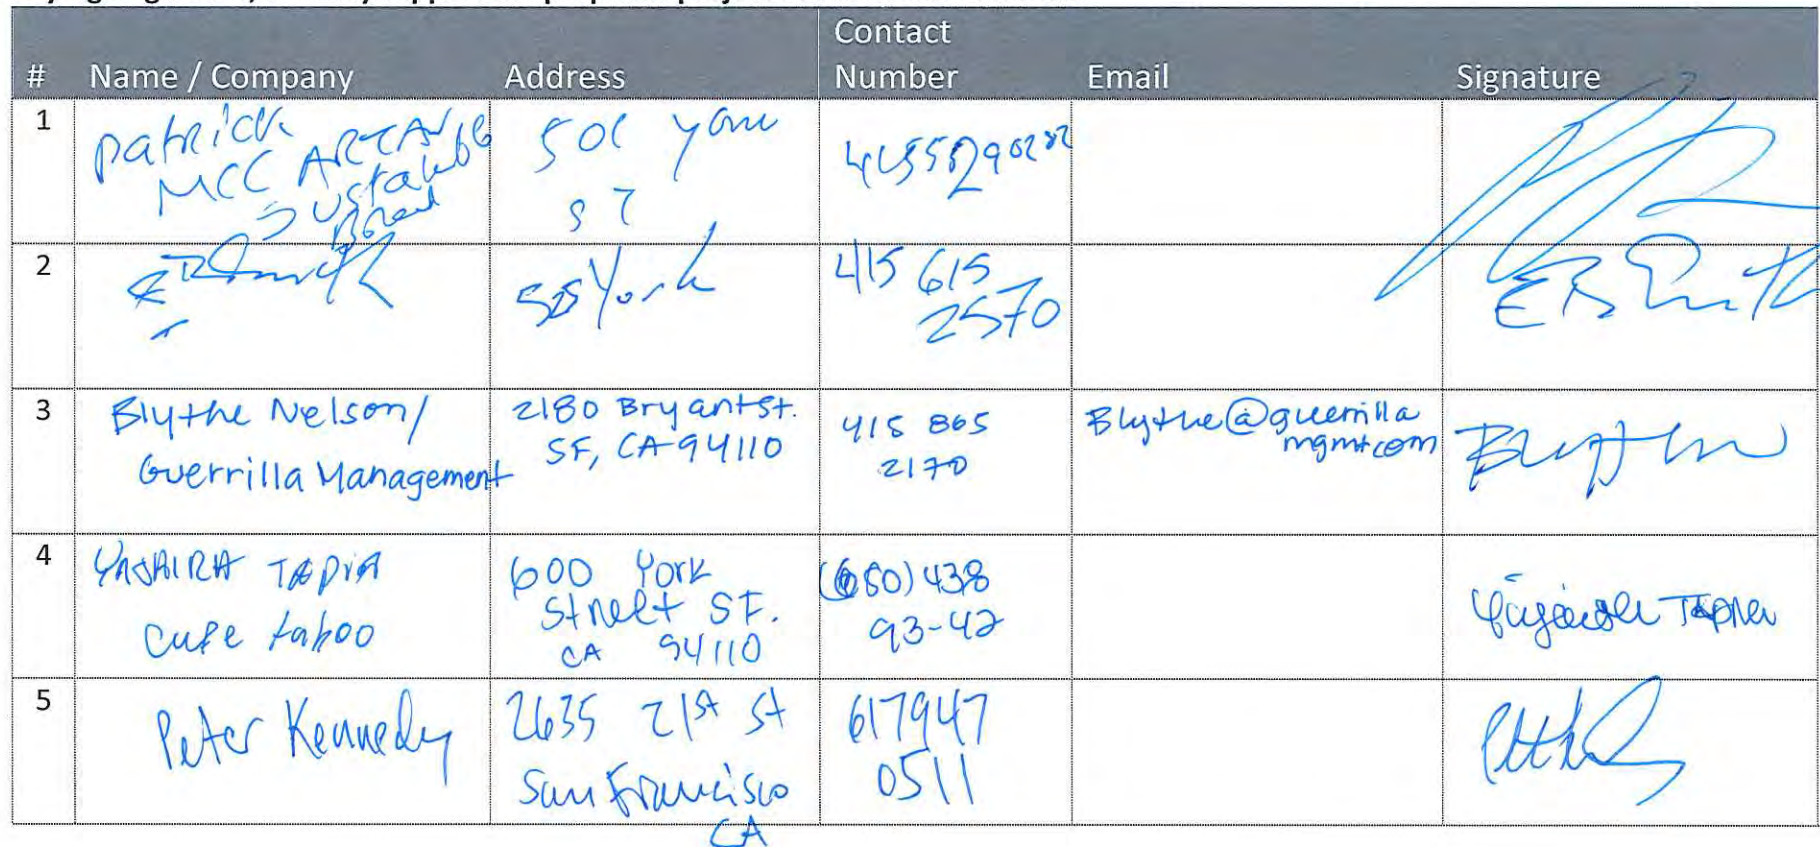 Contact
# Name / Company Address Number Email Signature
1
Patrick
MCC
501 York
ST
415
2
505 York
415 615
2570
3
Blythe Nelson/
Guerrilla Management
2180 Bryant St.
SF, CA 94110
415 865
2170
Blythe@guerrilla
mgmt.com
4
YAJAIRA TAPIA
Cafe taboo
600 York
Street SF.
CA 94110
(650) 438
93-42
TAPIA
5
Peter Kennedy
2635 21st St
San Francisco
CA
617947
0511